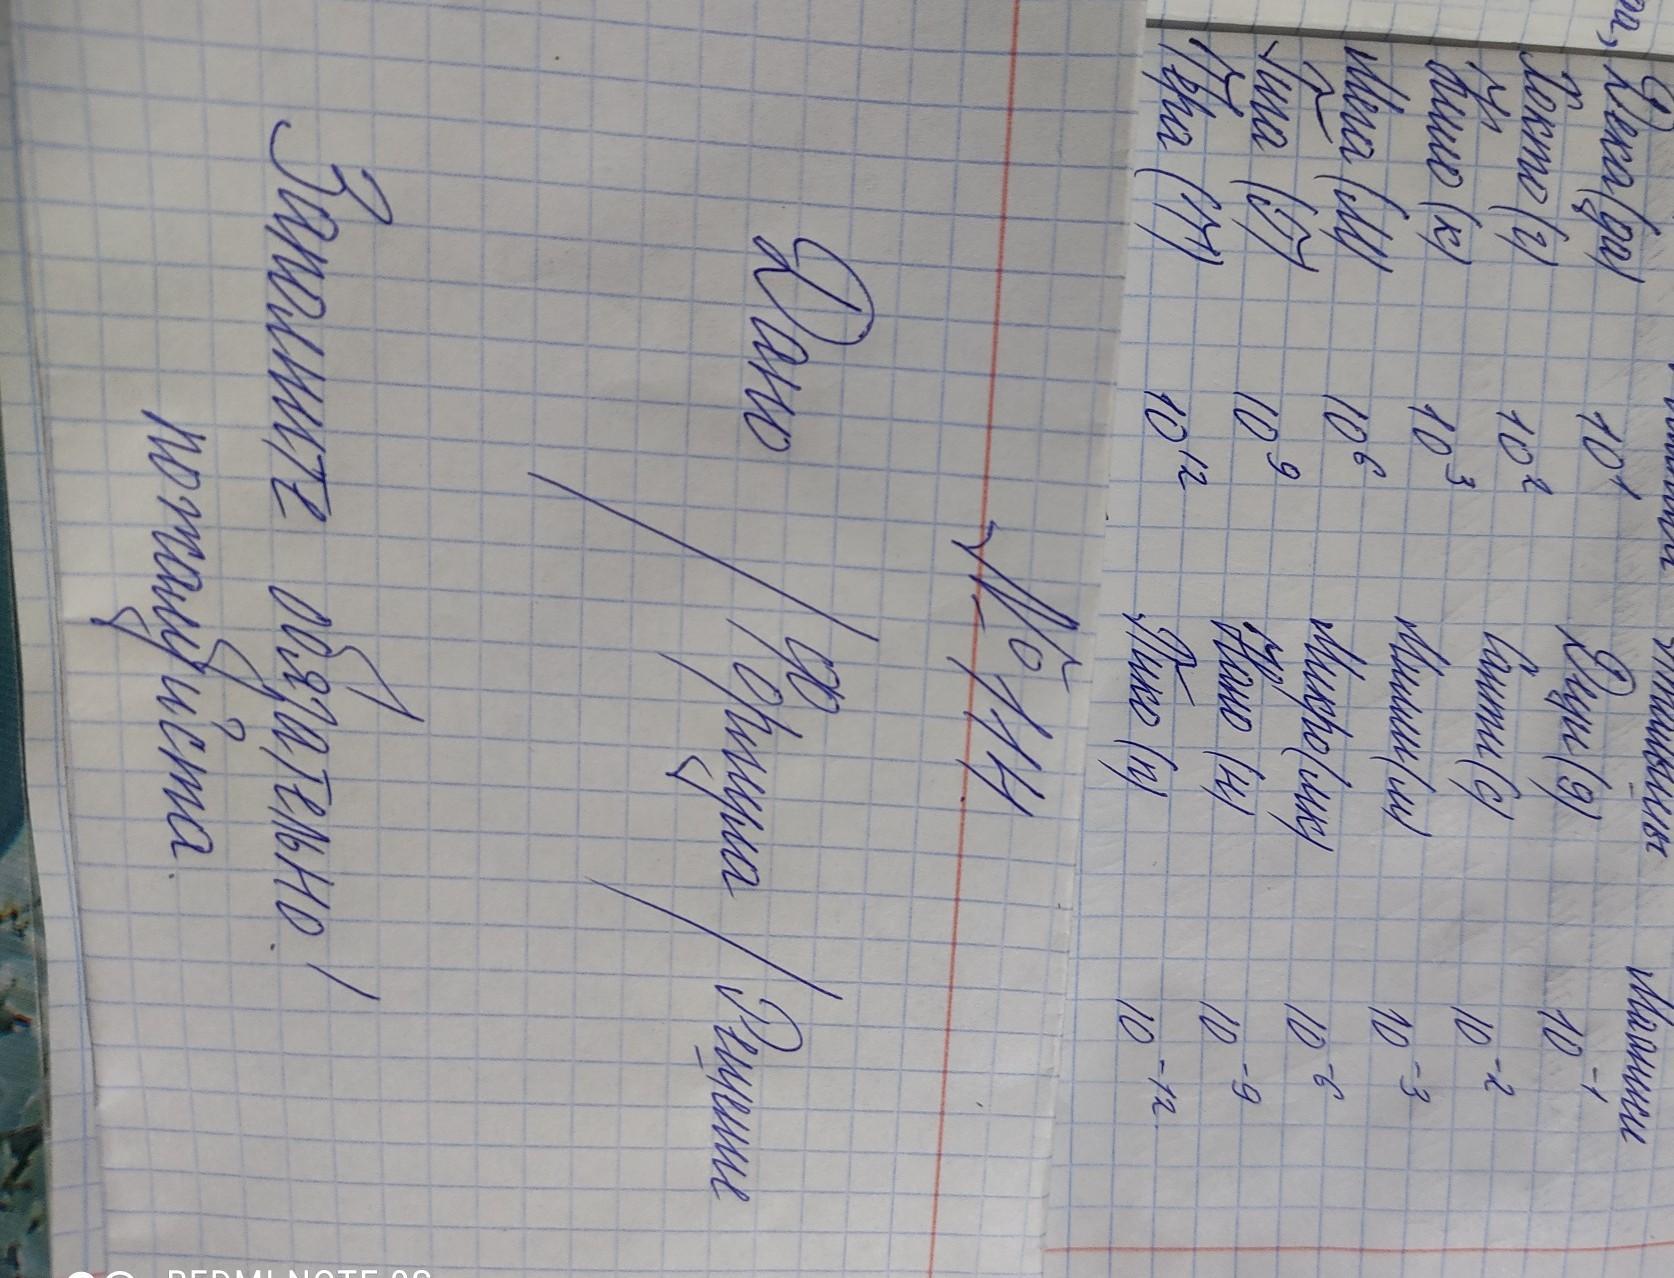 Приставки
Дека (да) 10¹ Деци (д) 10⁻¹
Гекто (г) 10² Санти (с) 10⁻²
Кило (к) 10³ Милли (м) 10⁻³
Мега (М) 10⁶ Микро (мк) 10⁻⁶
Гига (Г) 10⁹ Нано (н) 10⁻⁹
Тера (Т) 10¹² Пико (п) 10⁻¹²
Дано / Формула / Решение
Заполните обязательно!
пожалуйста.
REDMI NOTE